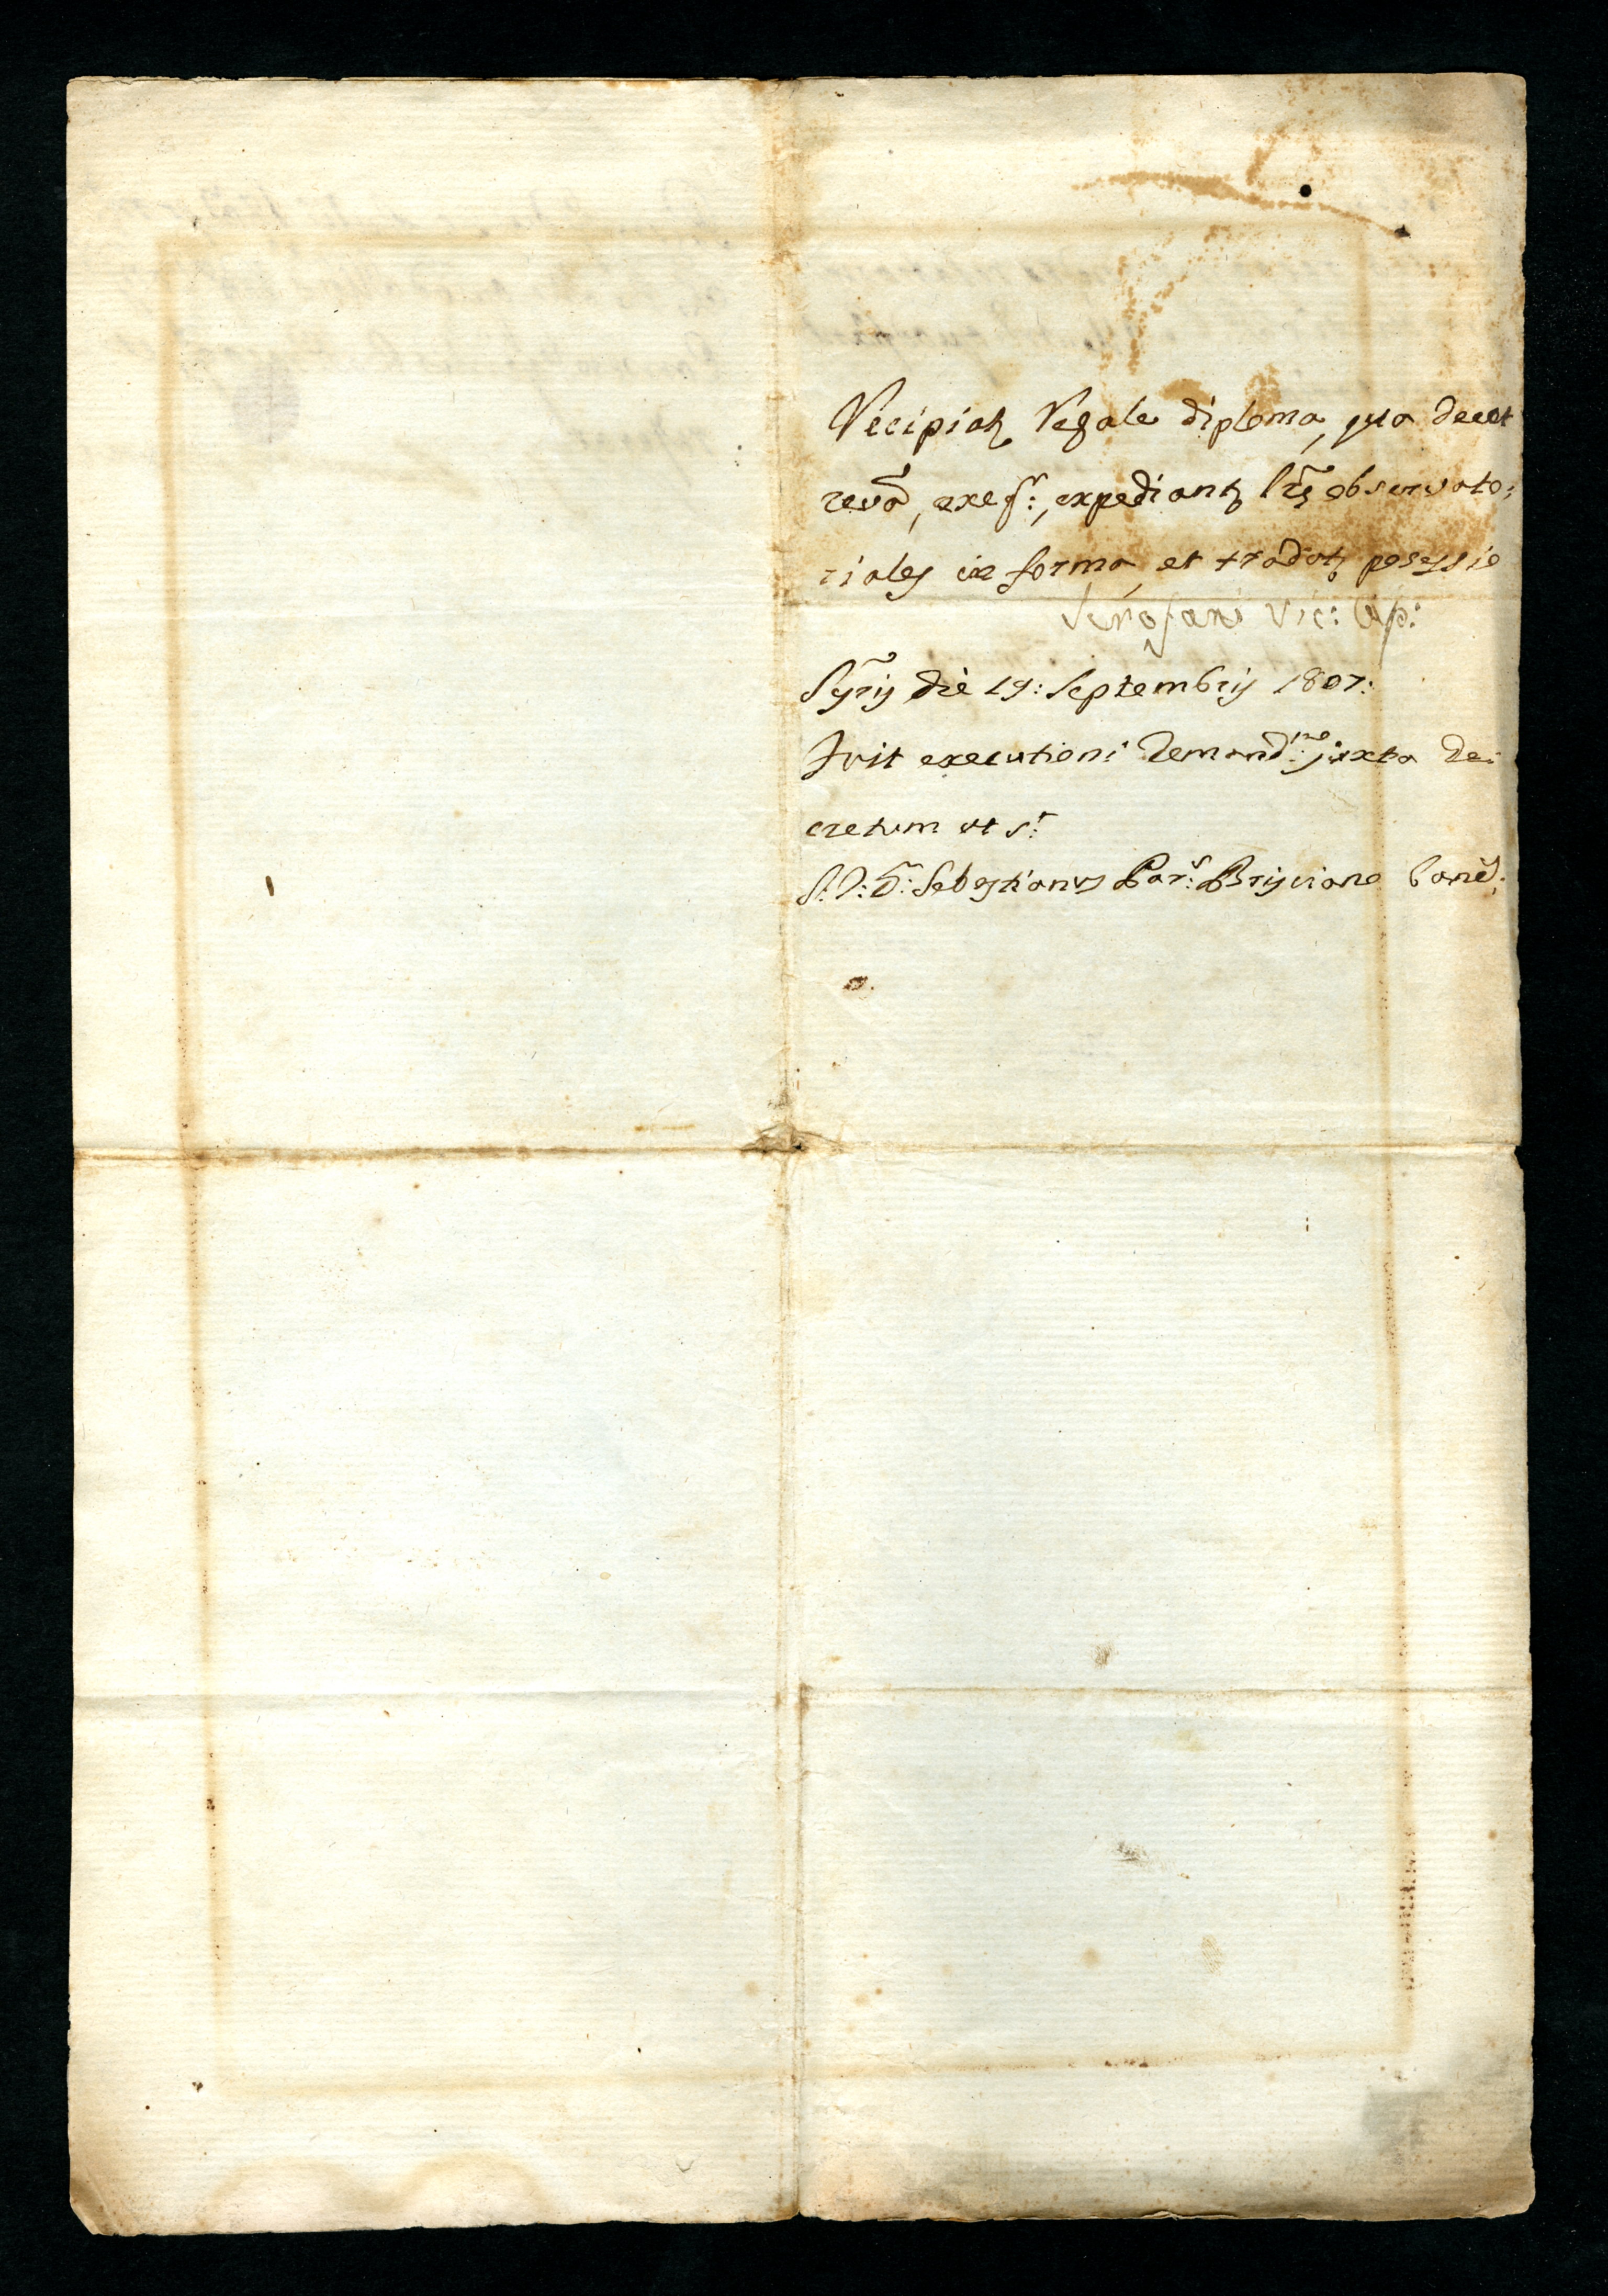 Recipiatz Regale diploma, qua decet
revã, exeqr:, expediantz lr̃s observato:
riales in forma, et tradatz posessio
Serofani Vic: Ap:
Sỹris die 19: Septembris 1807:
Fuit executioni demandme: juxta de:
cretum ut sr:
Sebastianus Pars: Brisciano